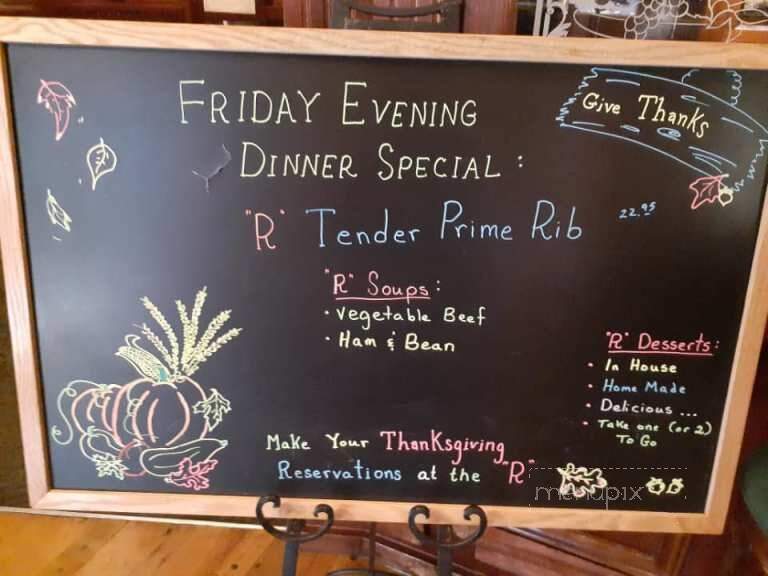 Give Thanks
FRIDAY EVENING
DINNER SPECIAL:
"R" Tender Prime Rib 22.95
"R" Soups:
· Vegetable Beef
· Ham & Bean
"R" Desserts:
· In House
· Home Made
· Delicious ...
· Take one (or 2)
To Go
Make Your Thanksgiving
Reservations at the "R"
menupix